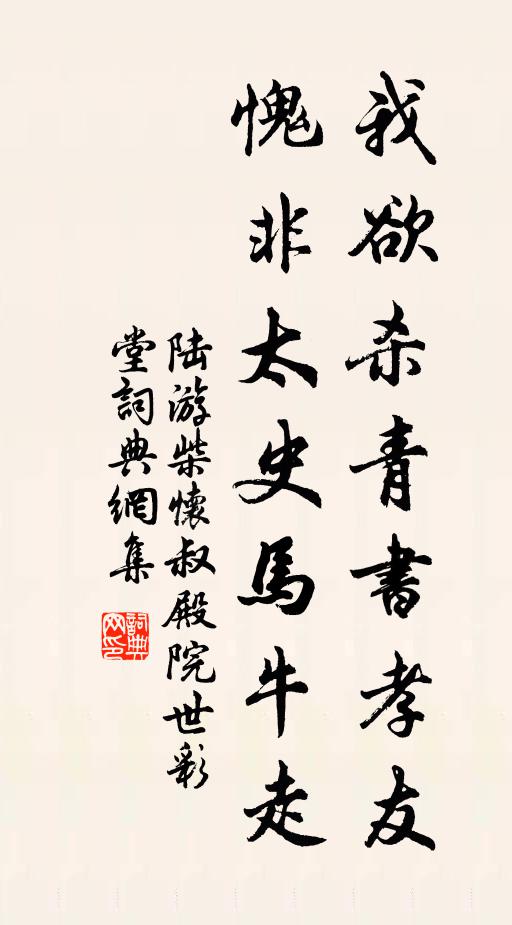 我欲杀青書孝友
愧非太史馬牛走
陆游柴懷叔殿院世彩
堂詞典網集
詞典
网印